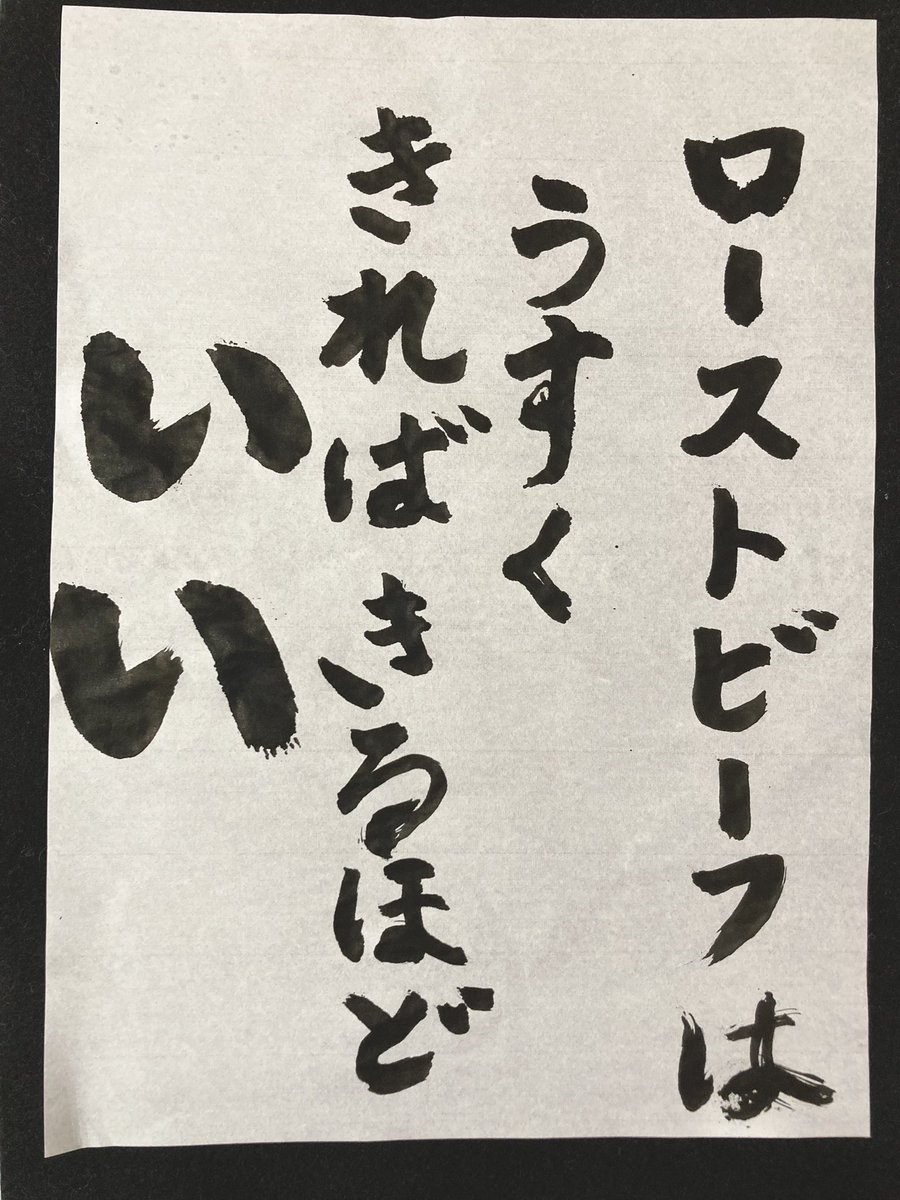 ローストビーフは
うすく
きればきるほど
いい